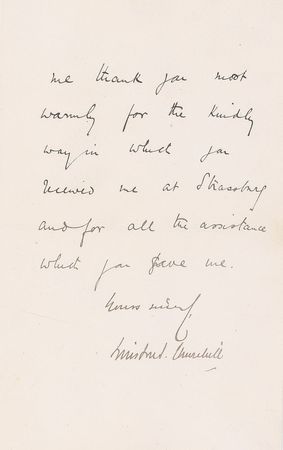 me thank you most
warmly for the kindly
way in which you
received me at Strassburg
and for all the assistance
which you gave me.
Yours
Winston S. Churchill